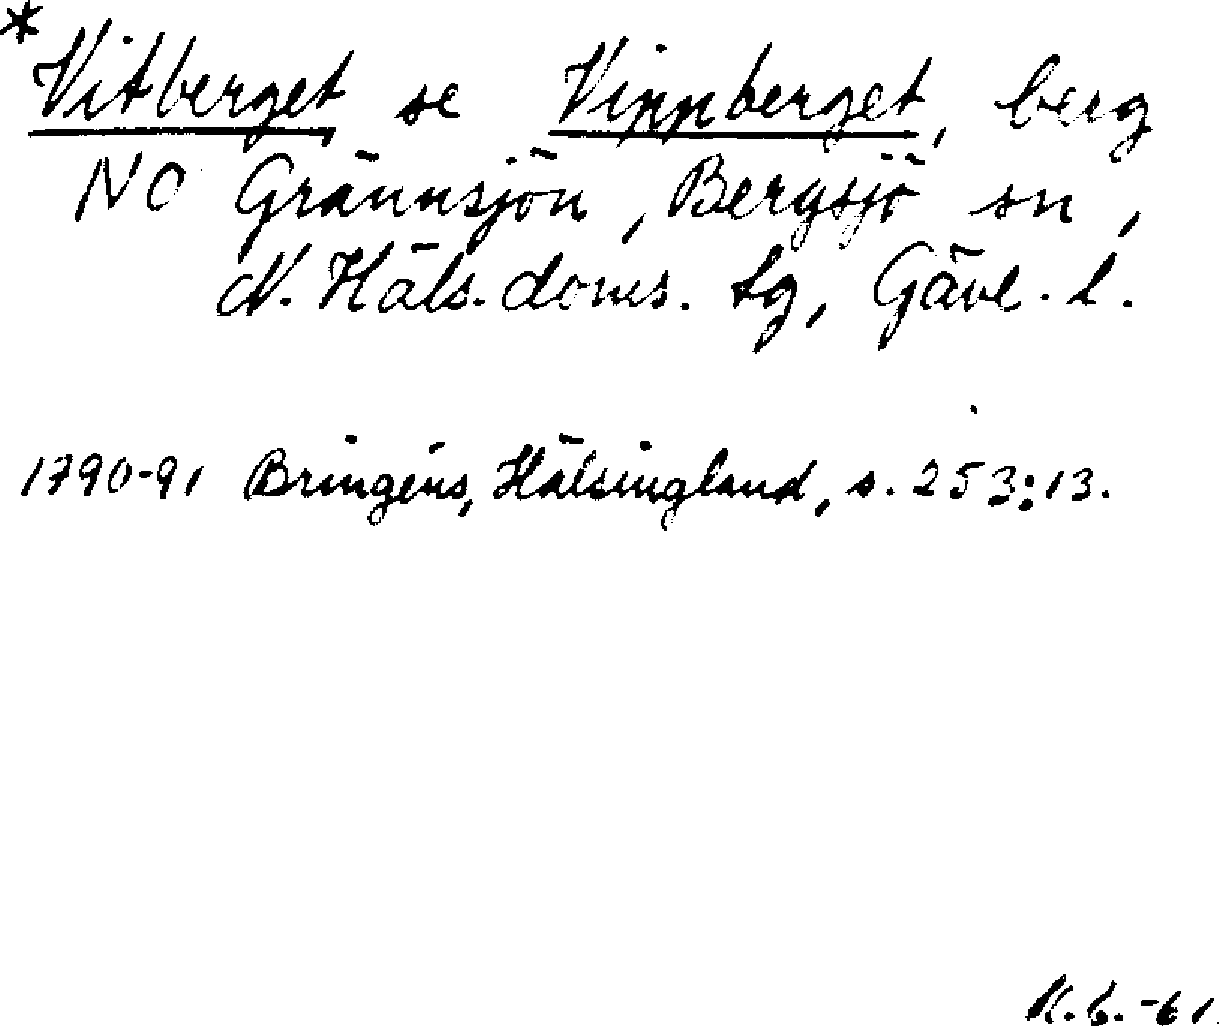 *
Vitberget se Vippberget, berg
NO Grännsjön, Bergsjö sn,
N. Häls. doms. tg, Gävl. l.
1790-91 Bringéus, Hälsingland, s. 253:13.
K.G.-61.